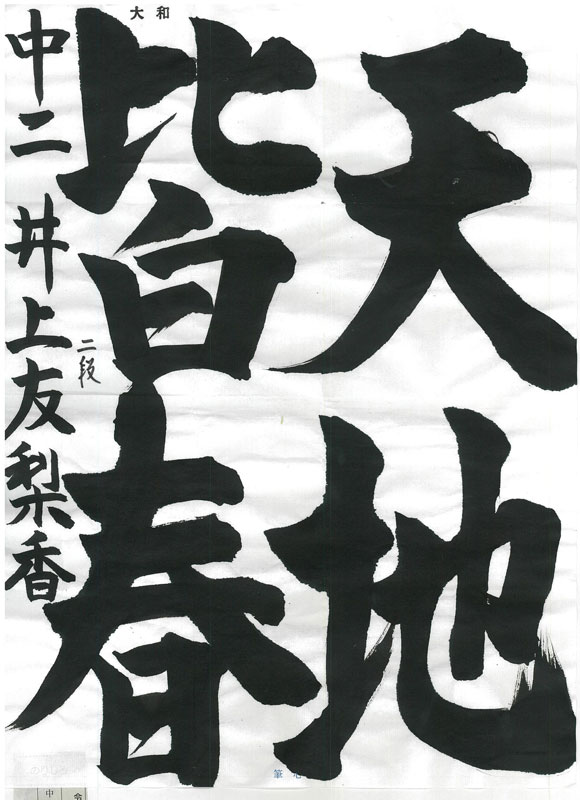 大和
天地
皆春
二段
中二 井上友梨香
筆
中